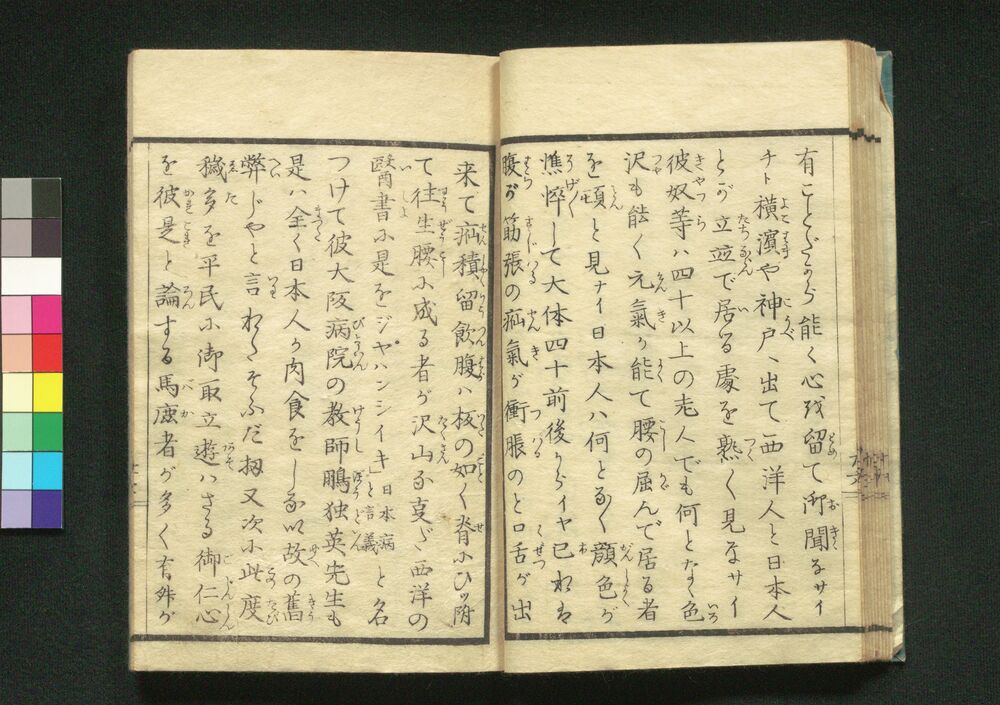 有ことだから能く心残留て御聞なサイ
チト横濱や神戸へ出て西洋人と日本人
とが立竝で居る處を熟く見なサイ
彼奴等ハ四十以上の老人でも何となく色
沢も能く元氣が能て腰の屈んで居る者
を頓と見ナイ日本人ハ何となく顔色が
憔悴して大体四十前後からイヤ己れは
腹が筋張の疝氣が衝脹のと口舌が出
来て疝積留飲腹ハ板の如く脊にひツ附
て往生腰に成る者が沢山な事だ西洋の
醫書に是を「ジヤパンシイキ」日本病と言義と名
つけて彼大阪病院の教師鵬独英先生も
是ハ全く日本人が肉食をしない故の舊
弊じやと言れたそふだ扨又次に此度
穢多を平民に御取立遊ハさる御仁心
を彼是と論する馬鹿者が多く有升が